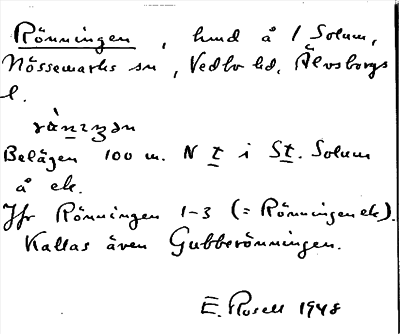 Rönningen, hmd å 1 Solum,
Nössemarks sn, Vedbo hd, Älvsborgs
l.
Belägen 100 m. N t i St. Solum
å ek.
Jfr Rönningen 1-3 (= Rönningen ek).
Kallas även Gubberönningen.
E. Rosell 1948